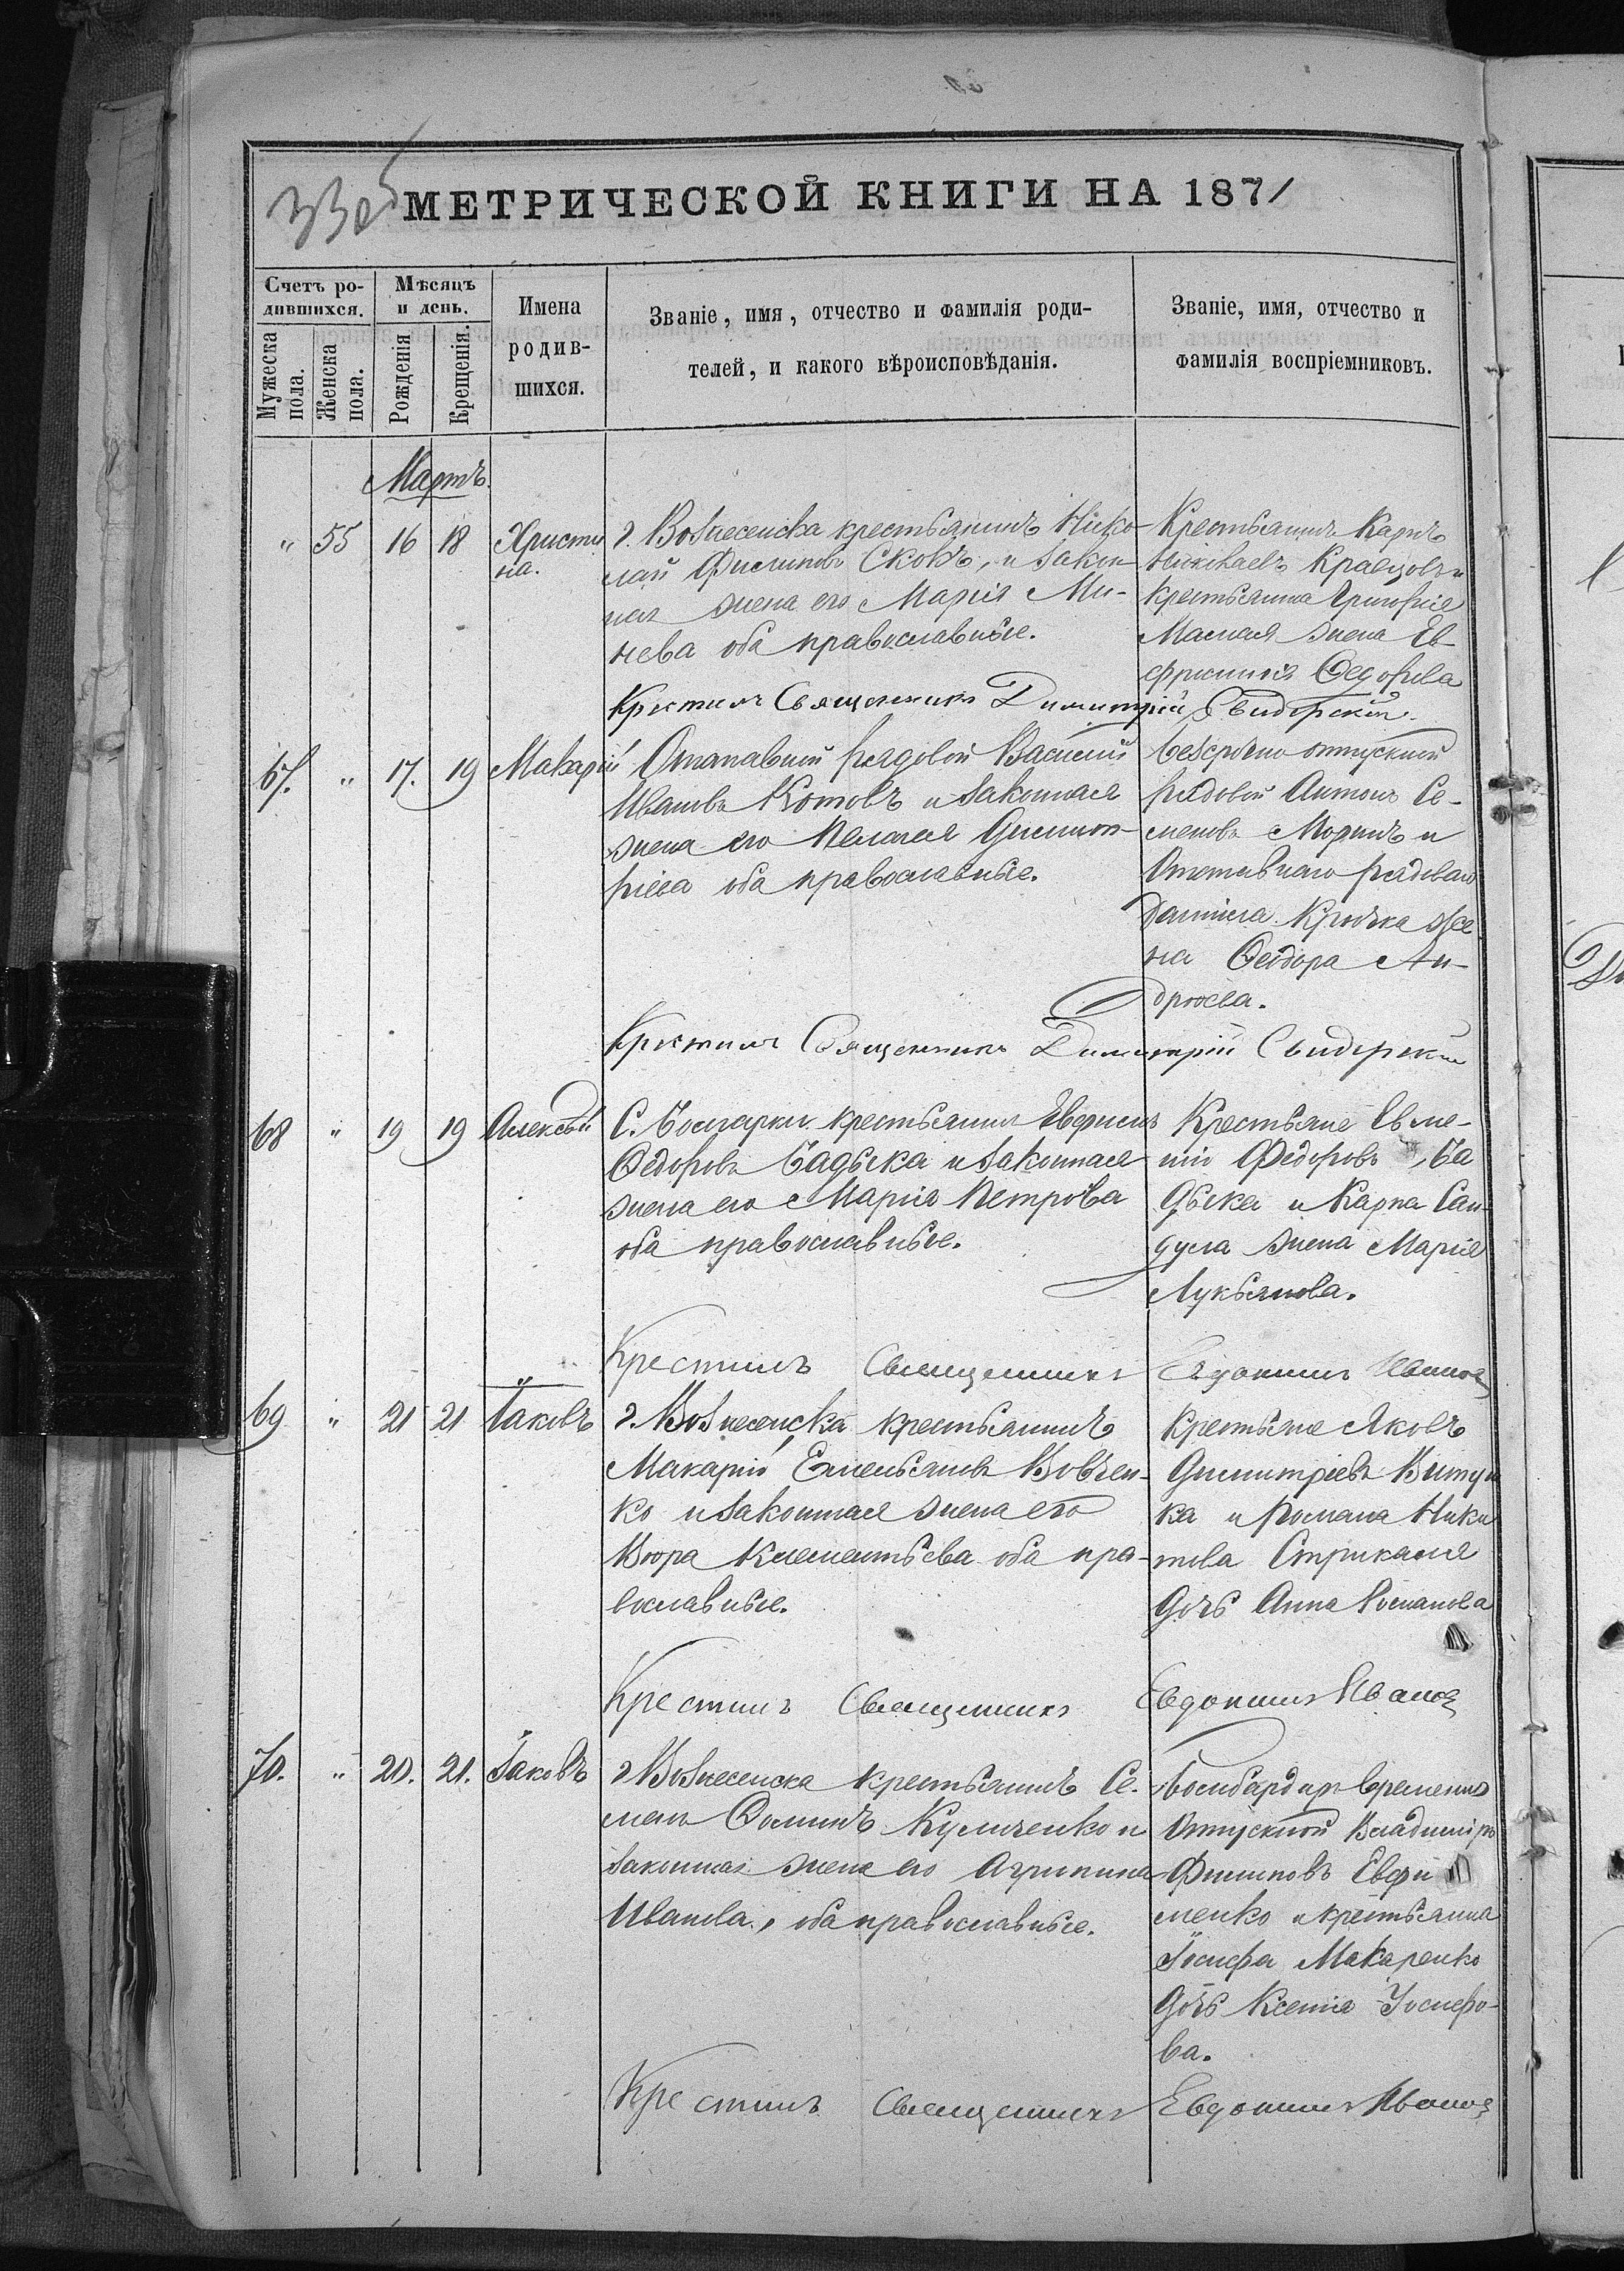 МЕТРИЧЕСКОЙ КНИГИ НА 1871
Счетъ ро-
дившихся.
Мужеска
пола.
Женска
пола.
Мѣсяцъ
и день.
Рожденія
Крещенія.
Имена
родив-
шихся.
Званіе, имя, отчество и фамилія роди-
телей, и какого вѣроисповѣданія.
Званіе, имя, отчество и
фамилія воспріемниковъ.
Мартъ.
" 55 16 18
Христи
на.
г. Вознесенска крестьянинъ Нико-
лай Филиповъ Скокъ, и закон-
ная жена его Марія Ми-
нева оба православные.
Крестьянинъ Карпъ
Николаевъ Кравцовъ и
крестьянина Григорія
жена Ев-
фросинія Федорова
Крестилъ Священникъ Димитрій Свидерскій.
67. " 17. 19 Макарій
Отставний рядовой Василий
Ивановъ Котовъ и законная
жена его Пелагея Димит-
ріева оба православные.
безсрочно отпускной
рядовой Антонъ Се-
меновъ Моринъ и
Отставнаго рядоваго
Даниила Крючка же
на Феодора Ан-
дреева.
Крестилъ Священникъ Димитрій Свидерскій
68 " 19 19 Алексѣй
С. Болгарки крестьянинъ
Федоровъ Бадыка и законная
жена его Марія Петрова
оба православные.
Крестьяне Евме-
ній Федоровъ Ба
дыка и Карпа Сан-
дула жена Марія
Лукьянова.
Крестилъ Священникъ Евдокимъ Иванов
69 " 21 21 Іаковъ
г. Вознесенска крестьянинъ
Макарій Емельяновъ Вовчен-
ко и законная жена его
Вѣра Клементьева оба пра-
вославные.
Крестьяне Яковъ
Димитріевъ
ка и Романа Ники
това Стрикаля
дочь Анна Романова
Крестилъ Священникъ Евдокимъ Иванов
70. " 20. 21. Іаковъ
г Вознесенска крестьянинъ Се-
менъ Фоминъ Кульченко и
законная жена его Агрипина
Иванова, оба православные.
Бомбардиръ временно
Отпускной Владиміръ
Филиповъ Евфи
менко и крестьянина
Іосифа Макаренко
дочь Ксенія Іосифо-
ва.
Крестилъ Священникъ Евдокимъ Иванов